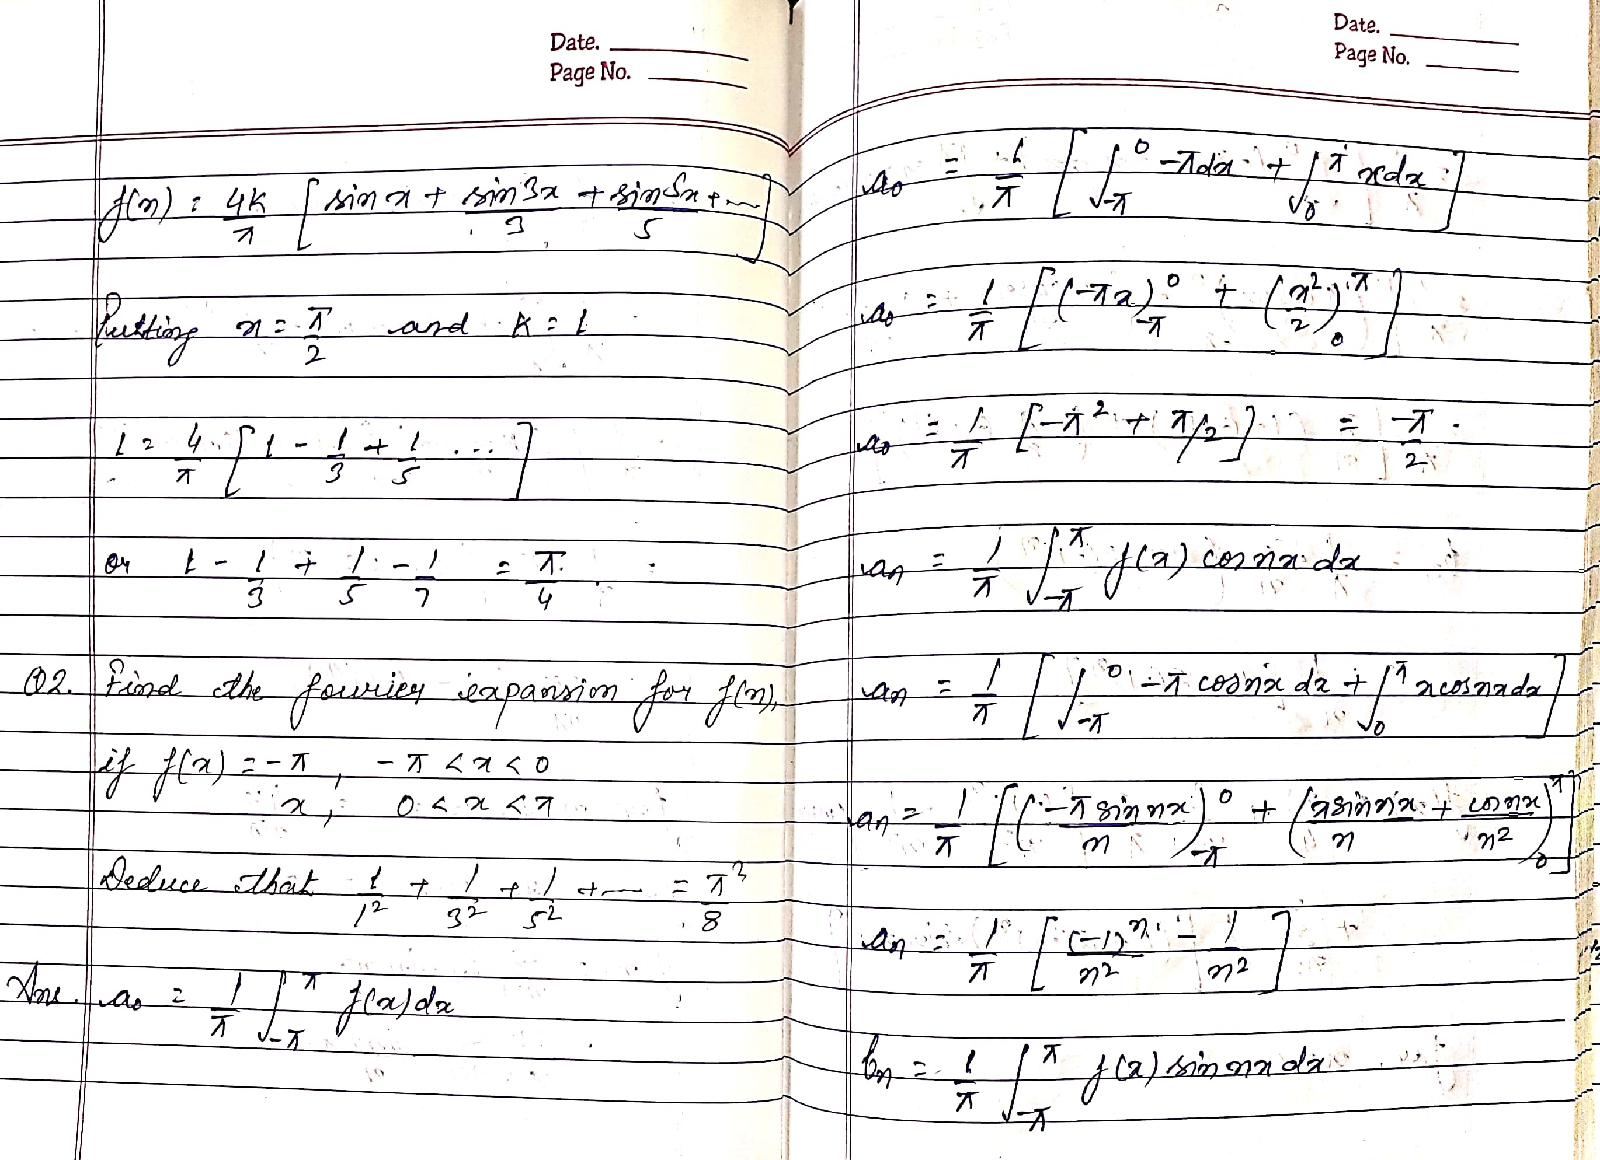 Date.
Page No.
f(x) = 4k/π [ sin x + sin3x/3 + sin5x/5 + ~~ ]
Putting x = π/2 and k = 1
1 = 4/π [ 1 - 1/3 + 1/5 ... ]
or 1 - 1/3 + 1/5 - 1/7 = π/4
Q2. Find the fourier expansion for f(x),
if f(x) = -π, -π < x < 0
x, 0 < x < π
Deduce that 1/1² + 1/3² + 1/5² + ~~ = π²/8
Ans. a₀ = 1/π ∫_{-π}^{π} f(x) dx
Date.
Page No.
a₀ = 1/π [ ∫_{-π}^{0} -π dx + ∫_{0}^{π} x dx ]
a₀ = 1/π [ (-πx)_{-π}^{0} + (x²/2)_{0}^{π} ]
a₀ = 1/π [ -π² + π/2 ] = -π/2
aₙ = 1/π ∫_{-π}^{π} f(x) cos nx dx
aₙ = 1/π [ ∫_{-π}^{0} -π cos nx dx + ∫_{0}^{π} x cos nx dx ]
aₙ = 1/π [ (-π sin nx / n)_{-π}^{0} + (x sin nx / n + cos nx / n²)_{0}^{π} ]
aₙ = 1/π [ (-1)ⁿ/n² - 1/n² ]
bₙ = 1/π ∫_{-π}^{π} f(x) sin nx dx